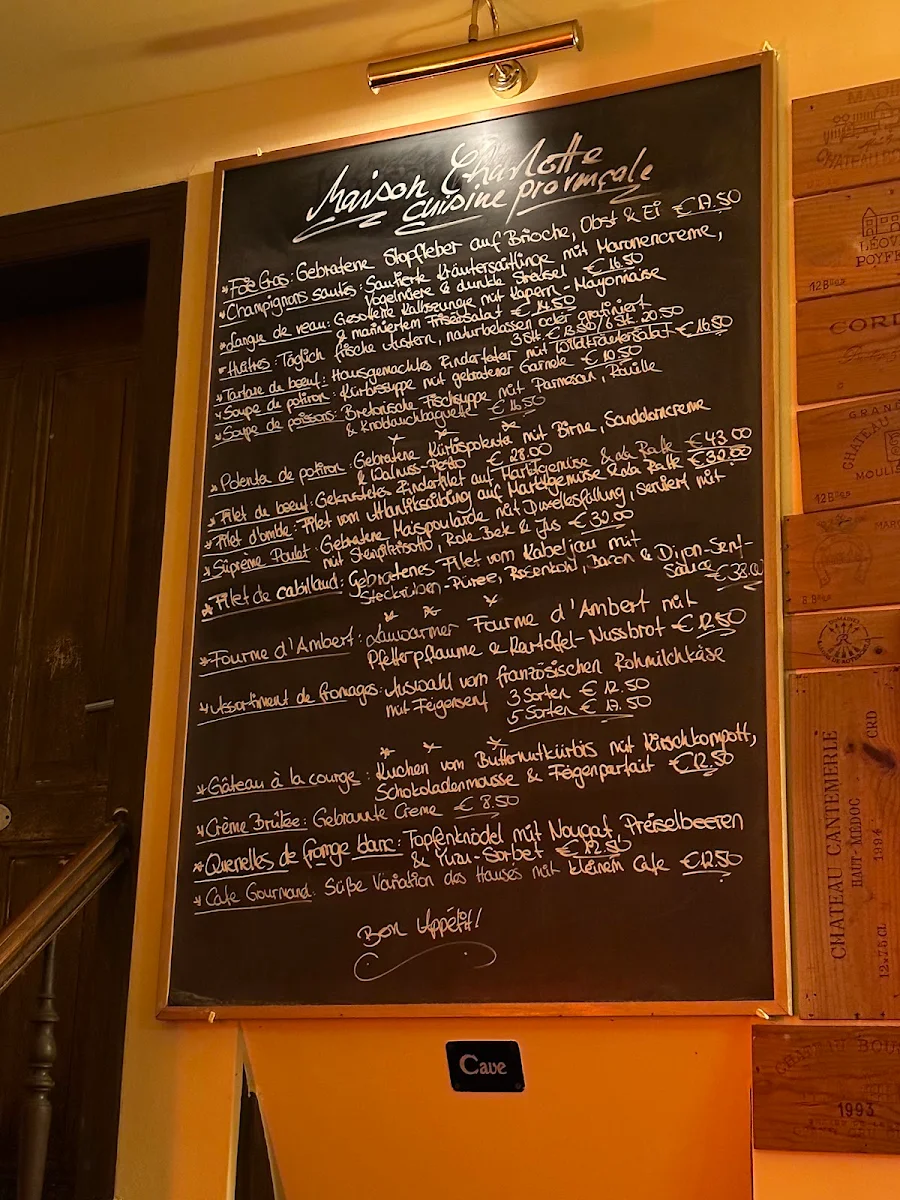 Maison Charlotte
cuisine provençale
* Foie Gras: Gebratene Stopfleber auf Brioche, Obst & Ei € 17.50
* Champignons sautés: Sautierte Kräutersaitlinge mit Maronencreme,
Vogelmiere & dunkle Streusel € 16.50
* Langue de veau: Gesottene Kalbszunge mit Kapern-Mayonnaise
& mariniertem Friséesalat € 14.50
* Huîtres: Täglich frische Austern, naturbelassen oder gratiniert
3 Stk. € 13.50/6 Stk. 20.50
* Tartare de bœuf: Hausgemachtes Rindertatar mit Wildkräutersalat € 16.50
* Soupe de potiron: Kürbissuppe mit gebratener Garnele € 10.50
* Soupe de poissons: Bretonische Fischsuppe mit Parmesan, Rouille
& Knoblauchbaguette € 16.50
* Polenta de potiron: Gebratene Kürbispolenta mit Birne, Sanddorncreme
& Walnuss-Pesto € 28.00
* Filet de bœuf: Gekrustetes Rinderfilet auf Marktgemüse & € 43.00
* Filet d'omble: Filet vom Atlantiksaibling auf Marktgemüse & € 32.00
* Süprème Poulet: Gebratene Maispoularde mit Duxellesfüllung, serviert mit
mit Steinpilzrisotto, Rote Bete & Jus € 32.00
* Filet de cabillaud: Gebratenes Filet vom Kabeljau mit
Steckrüben-Püree, Rosenkohl, Bacon & Dijon-Senf-
Sauce € 38.00
* Fourme d'Ambert: Lauwarmer Fourme d'Ambert mit
Pfefferpflaume & Kartoffel-Nussbrot € 12.50
* Assortiment de fromages: Auswahl vom französischen Rohmilchkäse
mit Feigensenf 3 Sorten € 12.50
5 Sorten € 17.50
* Gâteau à la courge: Kuchen vom Butternutkürbis mit Kirschkompott,
Schokoladenmousse & Feigenparfait € 12.50
* Crème Brûlée: Gebrannte Creme € 8.50
* Quenelles de fromge blanc: Topfenknödel mit Nougat, Preiselbeeren
& Yuzu-Sorbet € 12.50
* Cafe Gourmand: Süße Variation des Hauses mit kleinem Cafe € 12.50
Bon Appétit!
Cave
MADI
LÉOV
POYFE
12 B
CORD
GRAND
CHATEAU
MOULIS
12 B
8 B
DOMAINES
CHATEAU CANTEMERLE
HAUT-MÉDOC
1994
CRD
12x75CL
1993